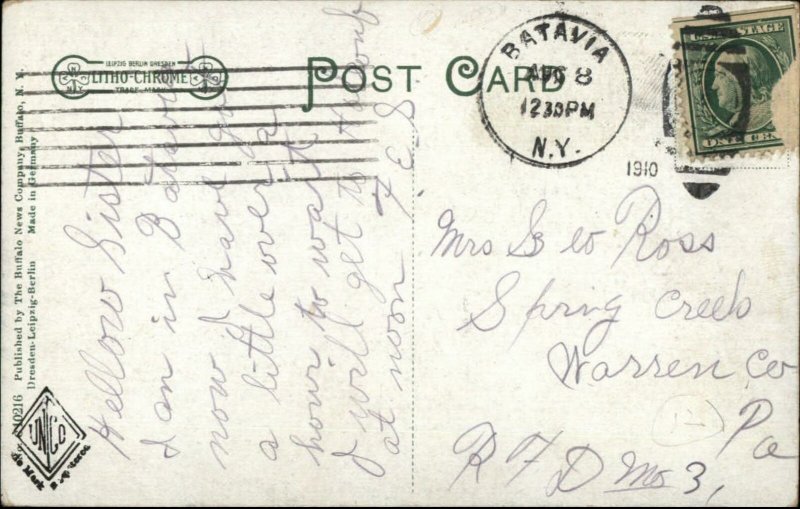 LEIPZIG BERLIN DRESDEN
LITHO-CHROME
TRADE MARK
POST CARD
BATAVIA
AUG 8
1230PM
N.Y.
1910
U.S. POSTAGE
ONE CE
Published by The Buffalo News Company, Buffalo, N. Y.
Dresden-Leipzig-Berlin Made in Germany
No. 10216
UNCo
Hellow Sister
I am in Batavia
now I have got
a little over a
hour to wait
I will get to Hacomb
at noon F E S
Mrs Geo Ross
Spring Creek
Warren Co
Pa
R F D No 3,
12